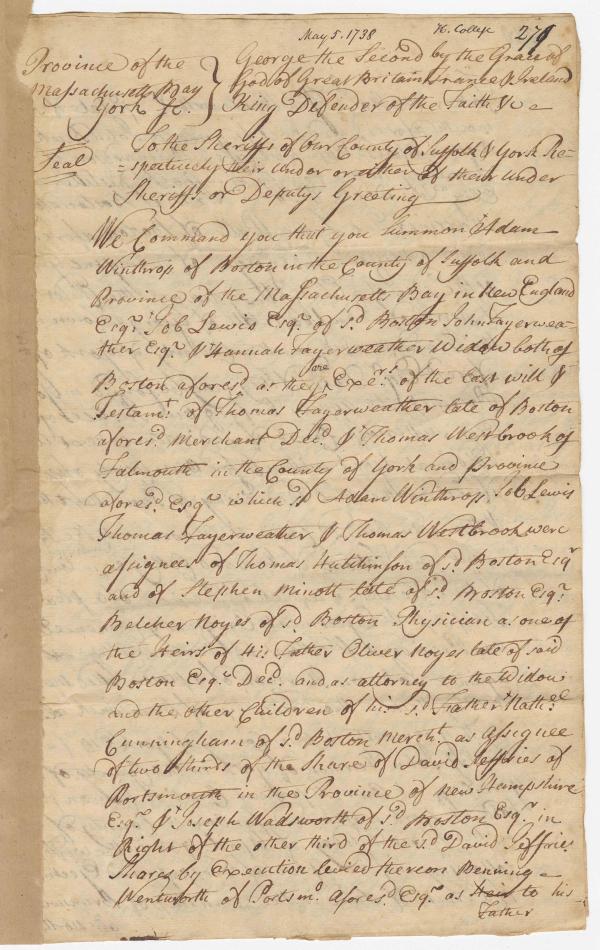 May 5. 1738 H. College 279
Province of the
Massachusetts Bay
York Sc.
George the Second by the Grace of
God of Great Britain France & Ireland
King Defender of the Faith &c
Seal
To the Sheriffs of Our County of Suffolk & York Re=
=spectively their Under or either of their Under
Sheriffs or Deputys Greeting
We Command you that you Summon Adam
Winthrop of Boston in the County of Suffolk and
Province of the Massachusetts Bay in New England
Esqr. Job Lewis Esqr. of sd. Boston John Fayerwea=
ther Esqr. & Hannah Fayerweather Widow both of
Boston aforesd. as they are Exers. of the last will &
Testamt. of Thomas Fayerweather late of Boston
aforesd. Merchant Decd. & Thomas Westbrook of
Falmouth in the County of York and Province
aforesd. Esqr. which sd. Adam Winthrop Job Lewis
Thomas Fayerweather & Thomas Westbrook were
assignees of Thomas Hutchinson of sd. Boston Esqr
and of Stephen Minott late of sd. Boston Esqr.
Belcher Noyes of sd Boston Physician as one of
the Heirs of His Father Oliver Noyes late of said
Boston Esqr. Decd. and as attorney to the Widow
and the other Children of his sd. Father Nathel
Cunningham of sd. Boston Mercht. as Assignee
of two thirds of the Share of David Jeffries of
Portsmouth in the Province of New Hampshire
Esqr. & Joseph Wadsworth of sd. Boston Esqr. in
Right of the other third of the sd. David Jeffries
Share by Execution levied thereon Benning
Wentworth of Portsmo. Aforesd. Esqr. as Heir to his
Father